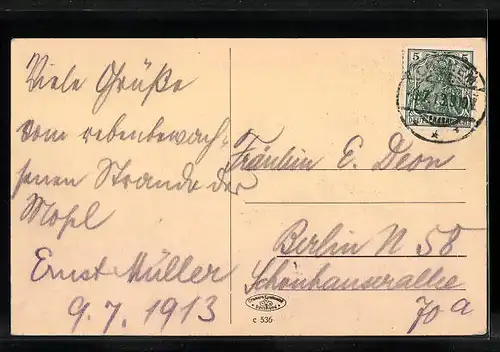 Viele Grüße
vom rebenbewach-
senen Strande der
Mosel
Ernst Müller
9.7.1913
5 5
DEUTSCHES REICH
Fräulein E. Deon
Berlin N 58
Schönhauserallee
70a
c 536